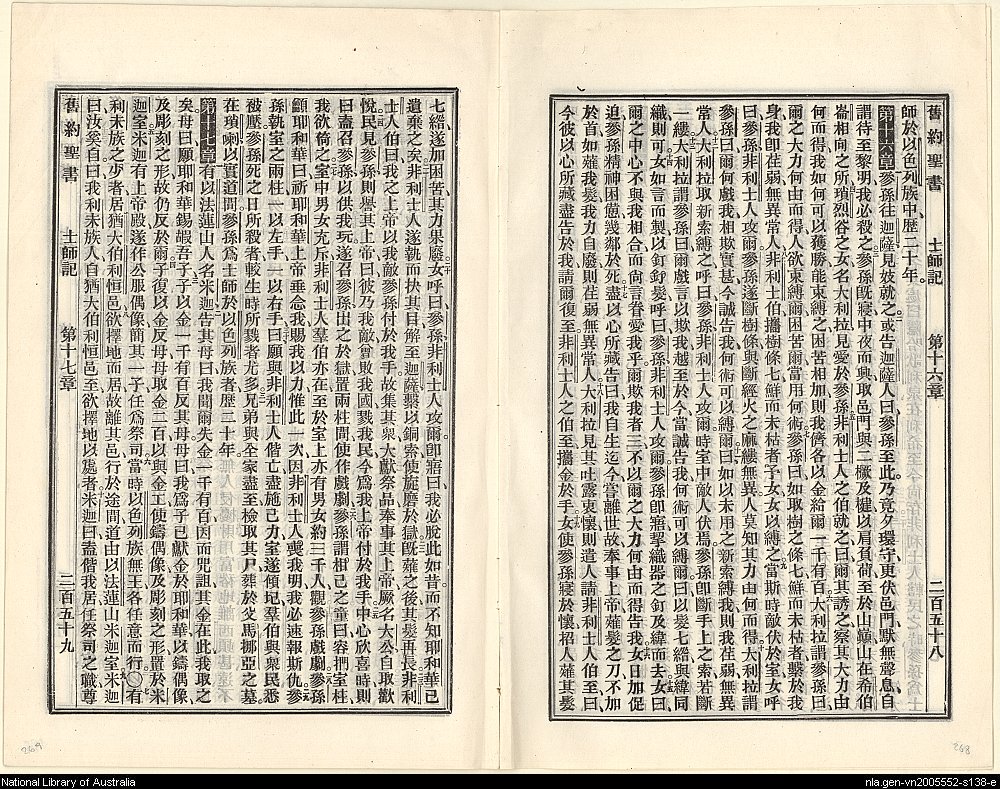 舊約聖書 士師記 第十六章 二百五十八
師於以色列族中歷二十年
第十六章 參孫往迦薩見妓就之或告迦薩人曰參孫至此乃竟夕環守更伏邑門默無聲息自
謂待至黎明我必殺之參孫旣寢中夜而興取邑門與二橛及楗以肩負荷至於山巔在希伯
崙相向之所瑣烈谷之女名大利拉見愛於參孫非利士人之伯就之曰爾其誘之察其大力由
何而得我如何可以獲勝能束縛之困苦相加則我儕各以金給爾一千有百大利拉謂參孫曰
爾之大力何由而得人欲束縛爾困苦爾當用何術參孫曰如取樹之條七鮮而未枯者繫於我
身我卽荏弱無異常人非利士伯攜樹條七鮮而未枯者予女女以縛之當斯時敵伏於室女呼
曰參孫非利士人攻爾參孫遂斷樹條與斷經火之麻縷無異人莫知其力由何而得大利拉謂
參孫曰爾何戲我相欺實甚今誠告我何術可以縛爾曰如以未用之新索縛我則我荏弱無異
常人大利拉取新索縛之呼曰參孫非利士人攻爾時室中敵人伏焉參孫卽斷手上之索若斷
一縷大利拉謂參孫曰爾戲言以欺我越至於今當誠告我何術可以縛爾曰以髮七綹與緯同
織則可女如言而製以釘釘髮呼曰參孫非利士人攻爾參孫卽寤挈織器之釘及緯而去女曰
爾之中心不與我相合而尙言眷愛我乎爾欺我者三不以爾之大力何由而得告我女日加促
迫參孫精神困憊幾鄰於死盡以心所藏告曰我自生迄今嘗離世故奉事上帝薙髮之刀不加
於首如薙我髮我力自廢則荏弱無異常人大利拉見其吐露衷懷則遣人請非利士人伯至曰
今彼以心所藏盡告於我請爾復至非利士人之伯至攜金於手女使參孫寢於懷招人薙其髮
舊約聖書 士師記 第十七章 二百五十九
七綹遂加困苦其力果廢女呼曰參孫非利士人攻爾卽寤曰我必脫此如昔而不知耶和華已
遺棄之矣非利士人遂執而抉其目解至迦薩繫以銅索使旋磨於獄旣薙之後其髮再長非利
士人伯曰我之上帝以我敵參孫付於我手故集其衆大獻祭品奉事其上帝厥名大公自取歡
悅民見參孫則譽其上帝曰彼乃我敵曾敗我國戮我民今爲我上帝付於我手中心欣喜時則
曰盍召參孫以供我玩遂召參孫出之於獄置兩柱間使作戲劇參孫謂相己之童曰容捫室柱
我欲倚之室中男女充斥非利士人羣伯亦在至於室上亦有男女約三千人觀參孫戲劇參孫
籲耶和華曰祈耶和華上帝垂念我賜我以力惟此一次因非利士人喪我明我必速報斯仇參
孫執室之兩柱一以左手一以右手曰願與非利士人偕亡盡施己力室遂傾圮羣伯與衆民悉
被壓參孫死之日所殺者較生時所戮者尤多兄弟與全家盡至檢取其尸葬於父馬挪亞之墓
在瑣喇以實道間參孫爲士師於以色列族者歷二十年
第十七章 有以法蓮山人名米迦告其母曰我聞爾失金一千有百因而咒詛其金在此我取之
矣母曰願耶和華錫嘏吾子子以金一千有百反其母母曰我爲子已獻金於耶和華以鑄偶像
及彫刻之形故仍反於爾子復以金反母母取金二百以與金工使鑄偶像及彫刻之形置於米
迦室米迦有上帝殿遂作公服偶像簡其一子任爲祭司當時以色列族無王各任意而行○有
利未族之少者居猶大伯利恒邑欲擇地而居故離其邑行於途間道由以法蓮山米迦室米迦
曰汝奚自曰我利未族人自猶大伯利恒邑至欲擇地以處者米迦曰盍偕我居任祭司之職尊
National Library of Australia
nla.gen-vn2005552-s138-e
264
268